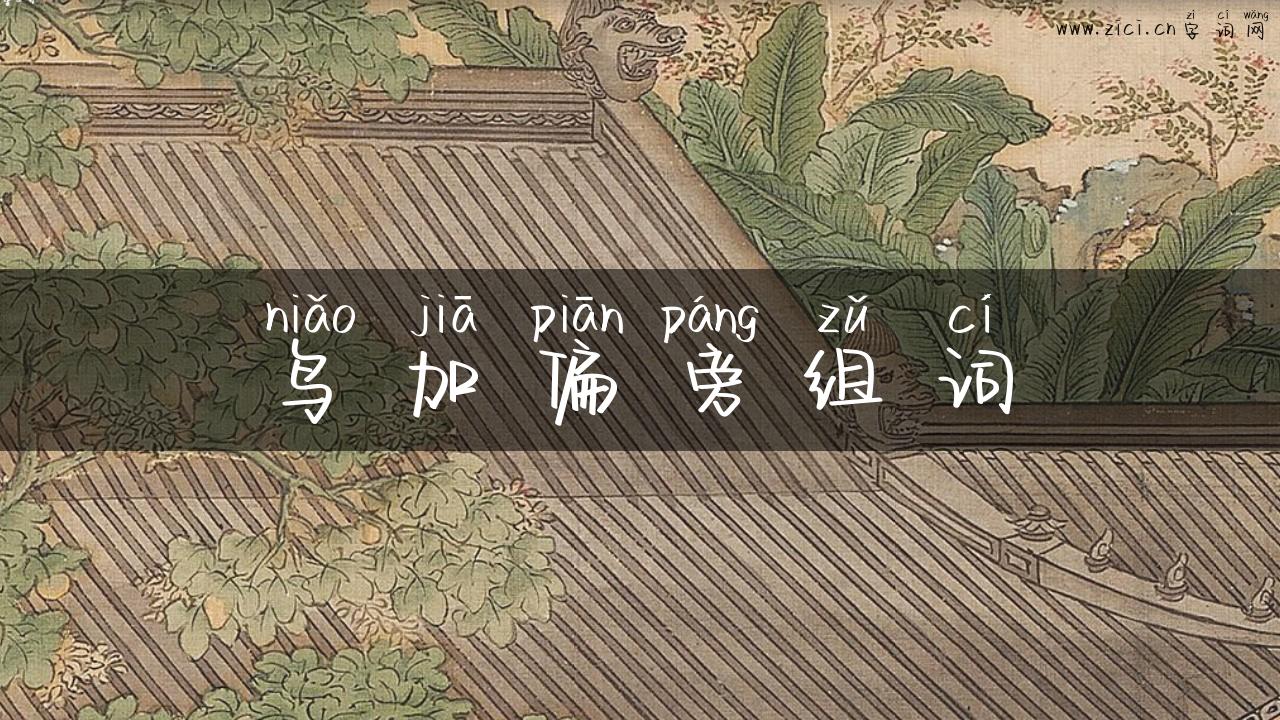 zì cí wǎng
www.zici.cn 字 词 网
niǎo jiā piān páng zǔ cí
鸟 加 偏 旁 组 词